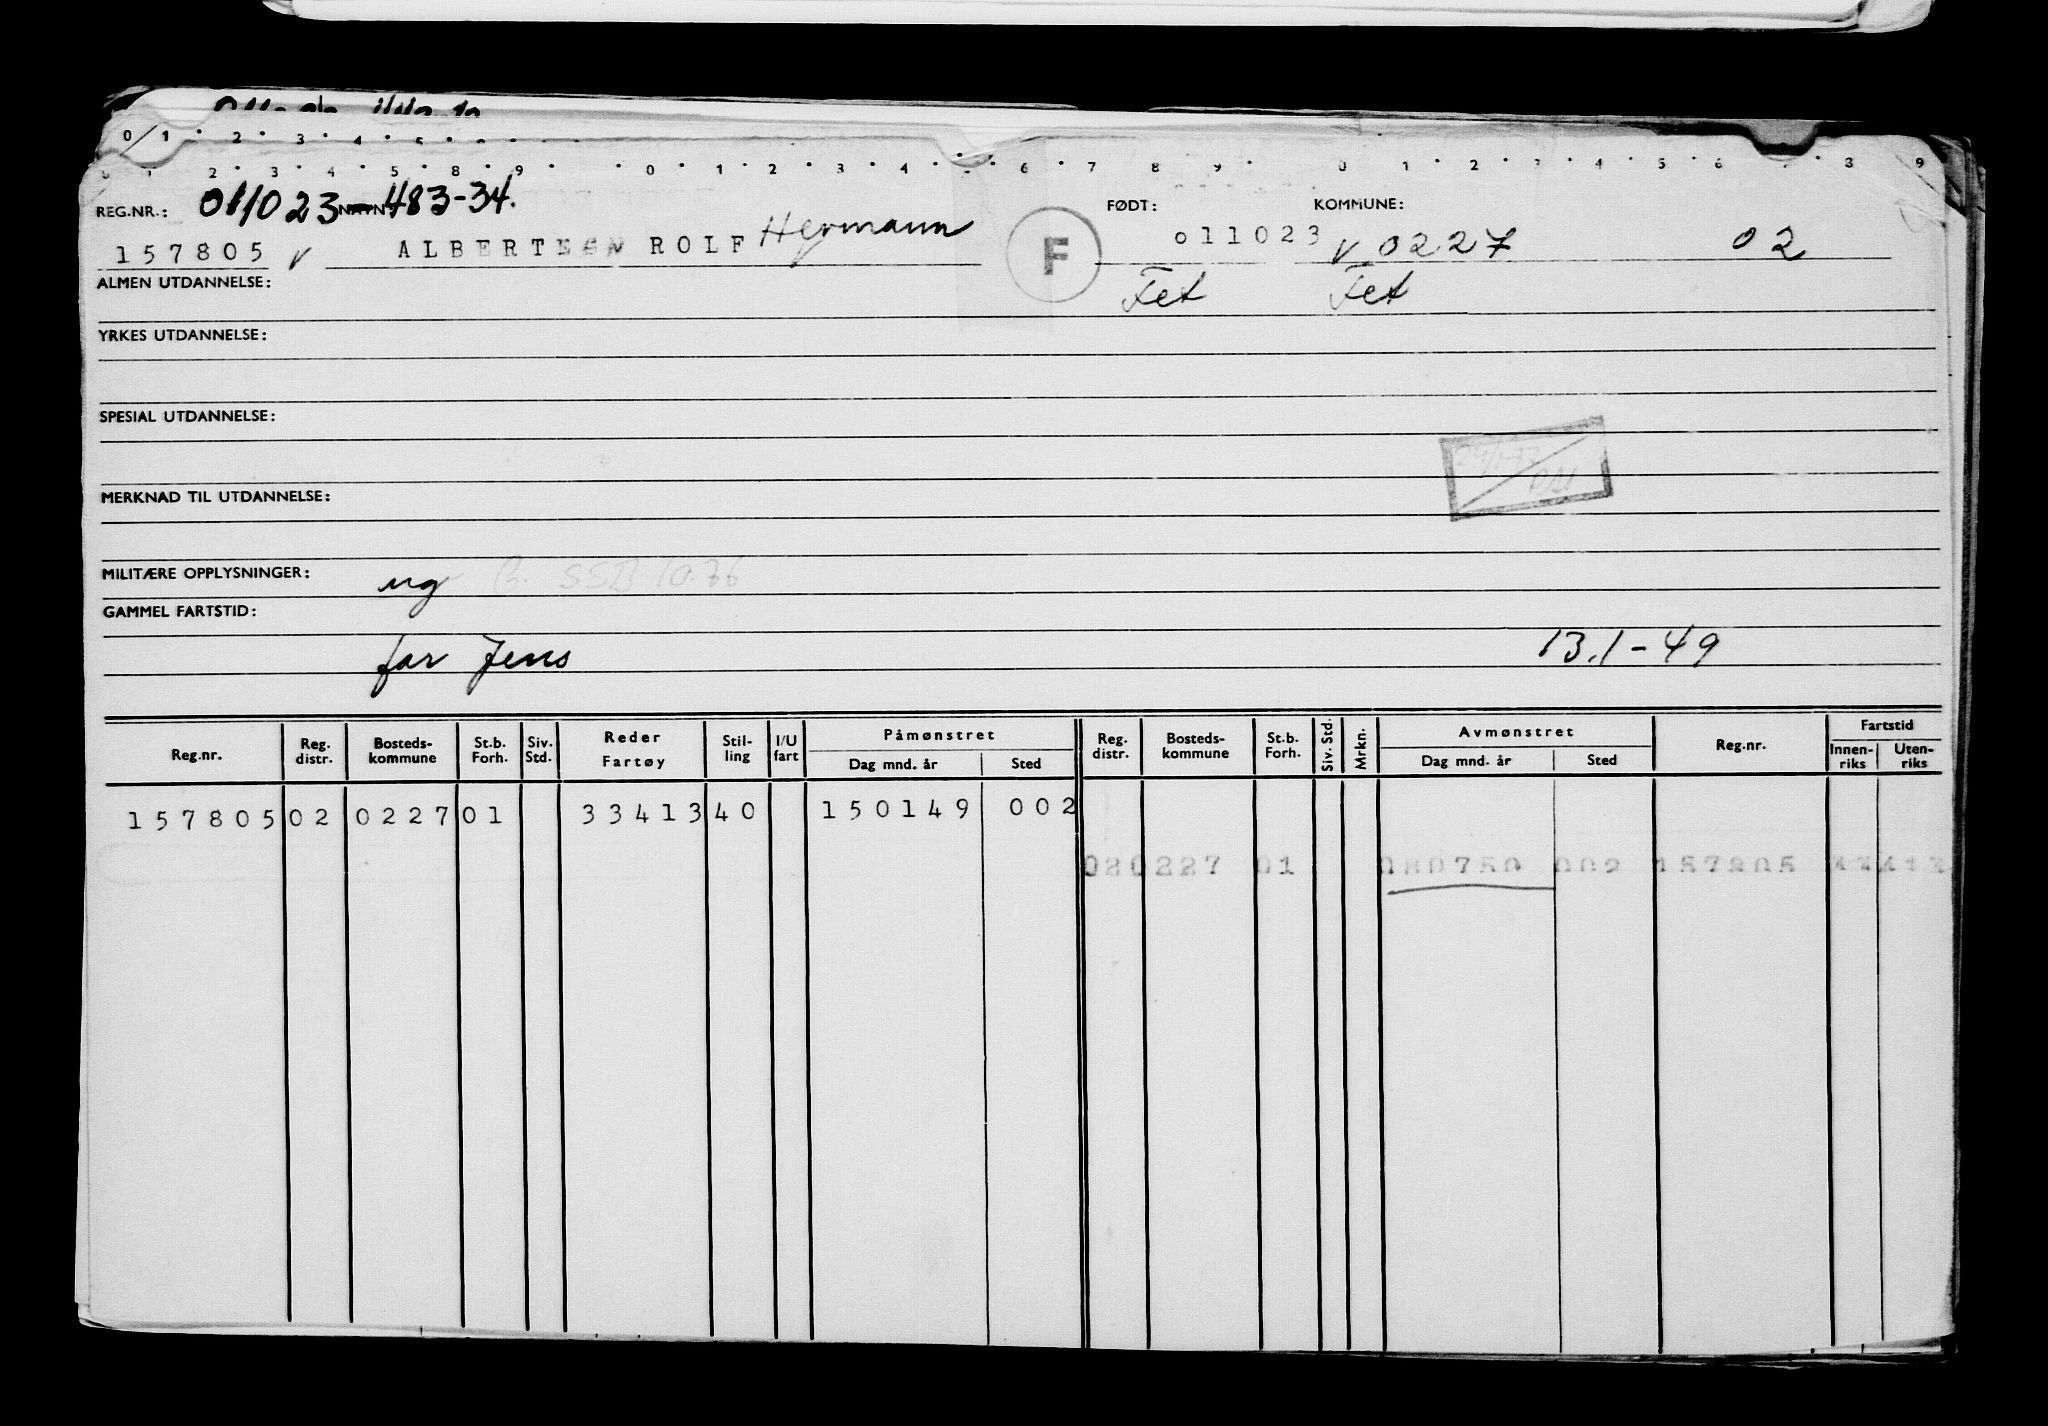 0 1 2 3 4 5
2 3 4 5 8 9 0 1 2 3 4 6 7 8 9 0 1 2 3 4 5 6 8 9
REG.NR.: 011023 483-34. FØDT: KOMMUNE:
157805 v ALBERTSEN ROLF Hermann F 011023 v 0227 02
ALMEN UTDANNELSE: Fet Fet
YRKES UTDANNELSE:
SPESIAL UTDANNELSE:
MERKNAD TIL UTDANNELSE:
MILITÆRE OPPLYSNINGER: ug B. SSB 10.76
GAMMEL FARTSTID:
far Jens 13.1-49
Reg.nr. Reg. distr. Bosteds-kommune St.b. Forh. Siv. Std. Reder Fartøy Stil-ling I/U fart Påmønstret Dag mnd. år Sted Reg. distr. Bosteds-kommune St.b. Forh. Siv. Std. Mrkn. Avmønstret Dag mnd. år Sted Reg.nr. Fartstid Innen-riks Uten-riks
157805 02 0227 01 33413 40 150149 002
02 0227 01 080750 002 157805